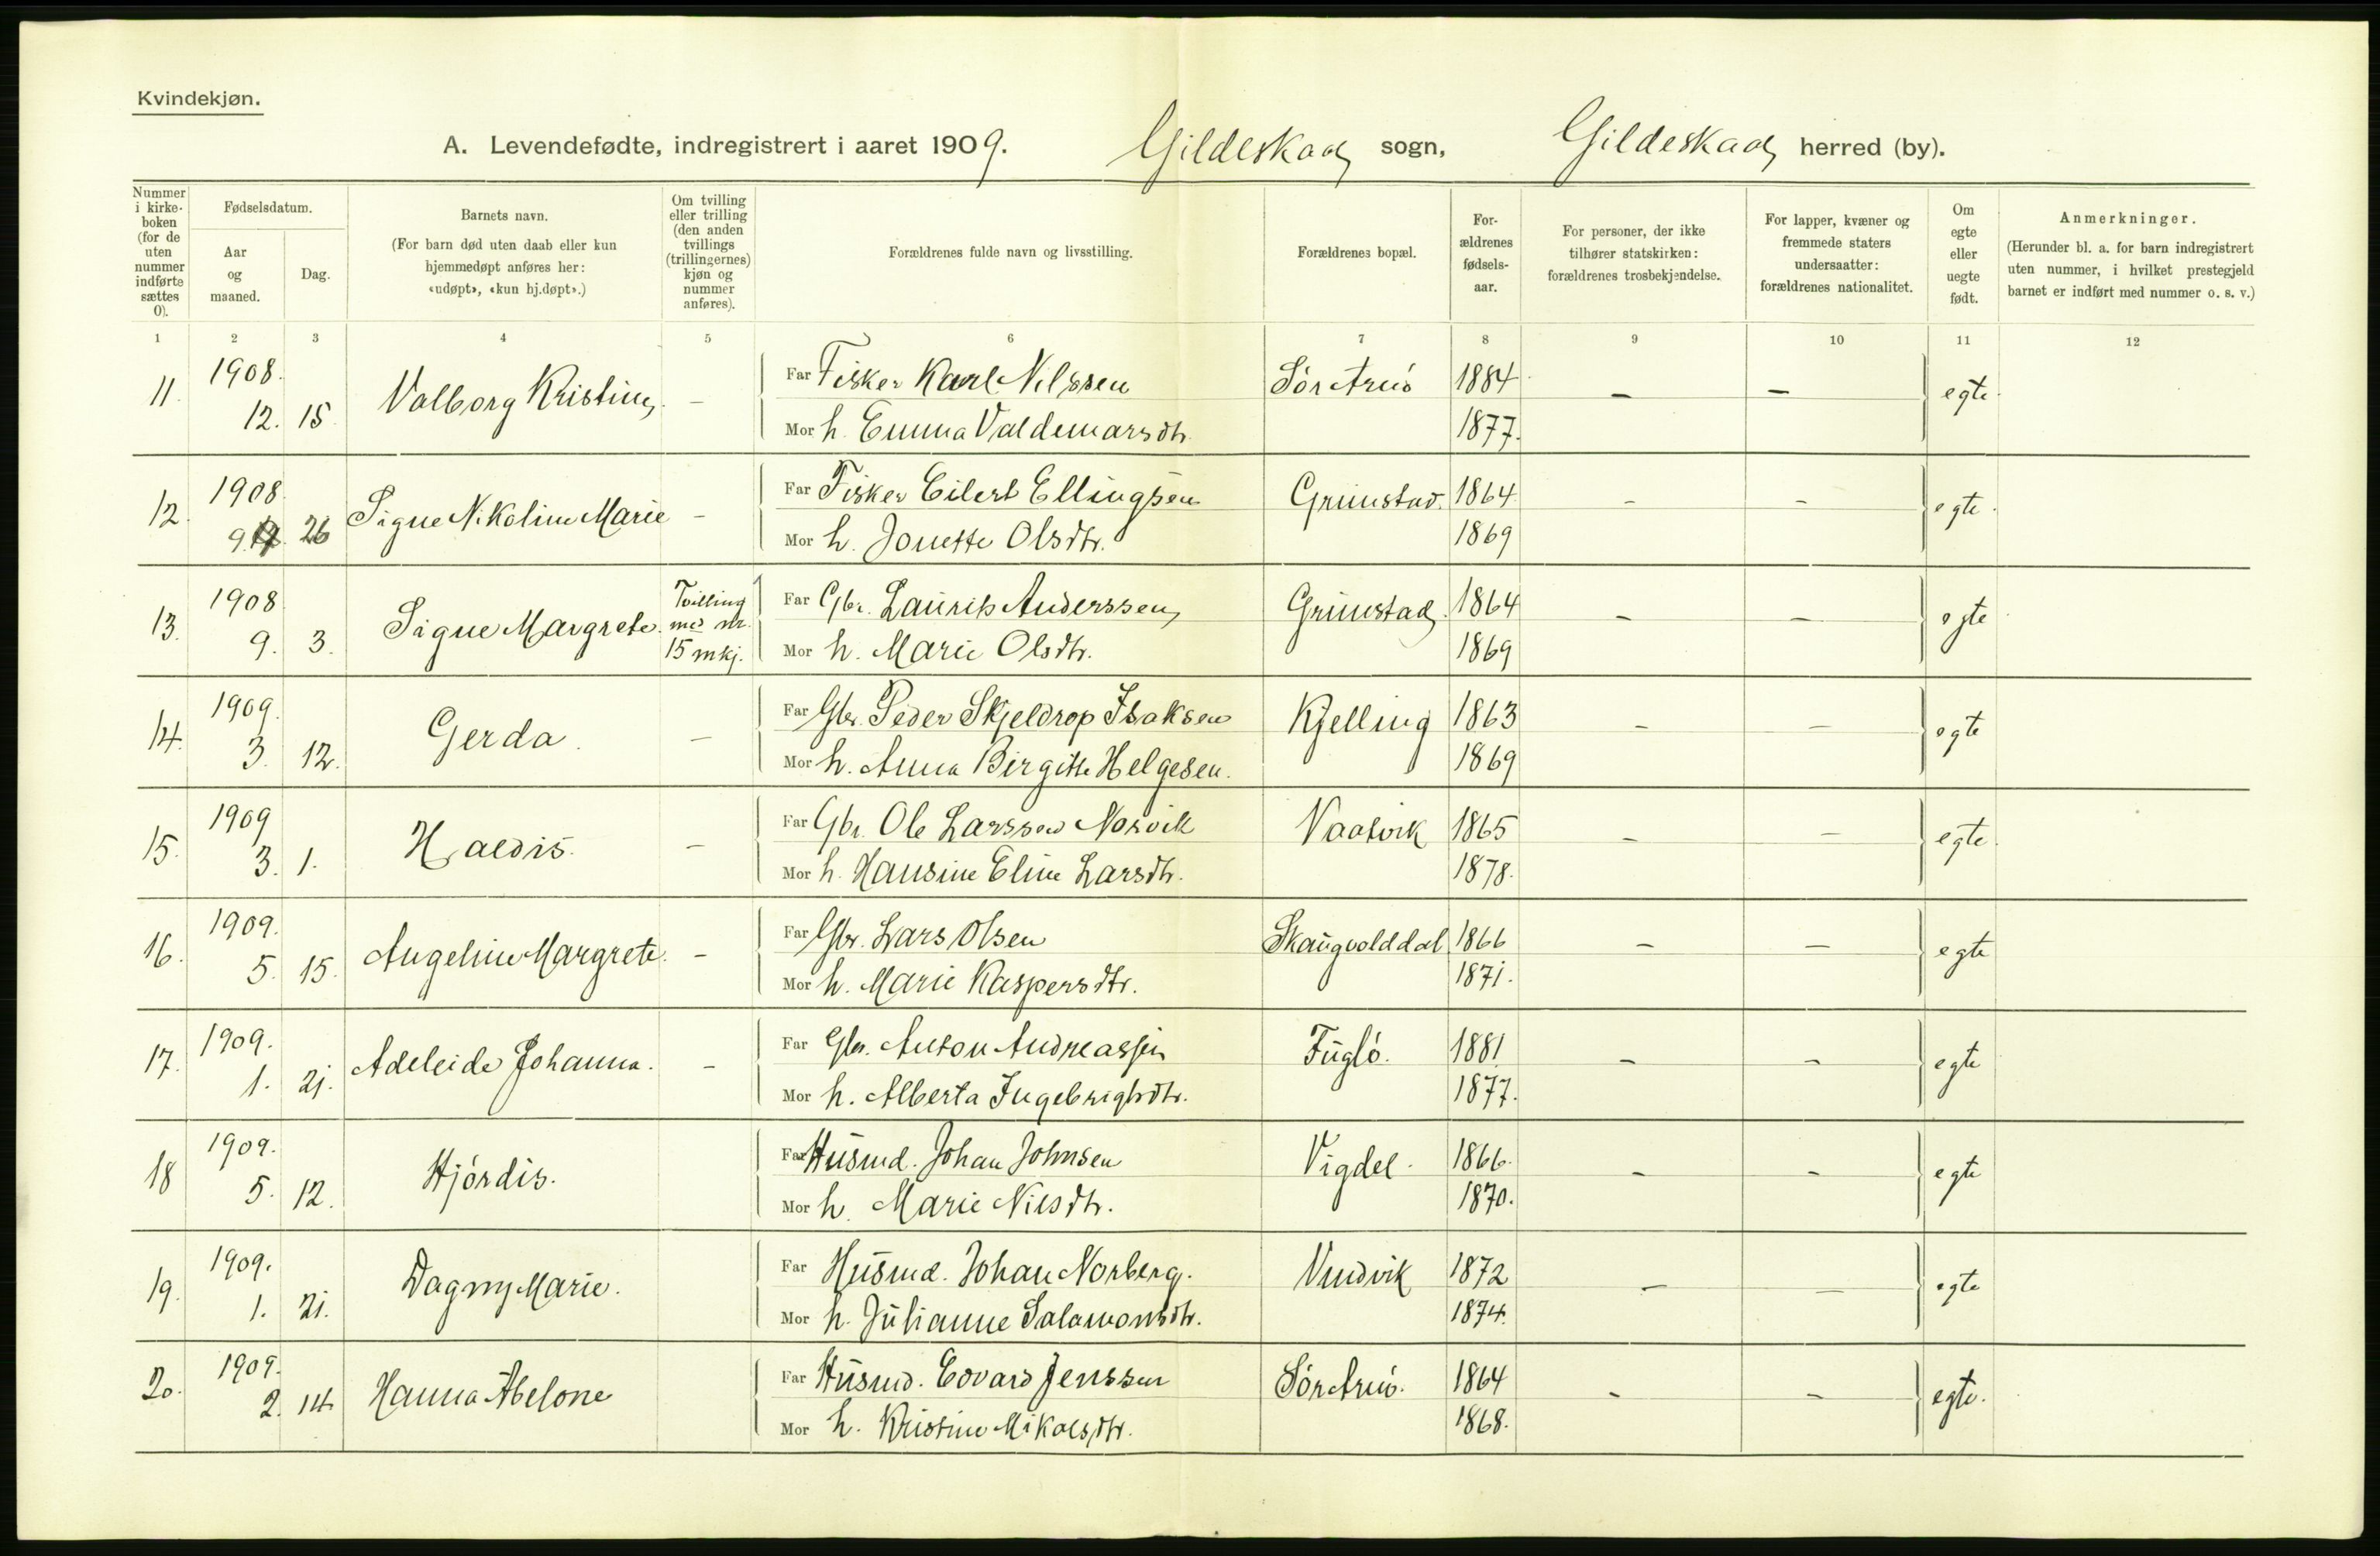 Kvindekjøn.
A. Levendefødte, indregistrert i aaret 1909. Gildeskaal sogn, Gildeskaal herred (by).
Nummer i kirke-boken (for de uten nummer indførte sættes 0).
Fødselsdatum.
Aar og maaned.
Dag.
Barnets navn.
(For barn død uten daab eller kun hjemmedøpt anføres her: «udøpt», «kun hj.døpt».)
Om tvilling eller trilling (den anden tvillings (trillingernes) kjøn og nummer anføres).
Forældrenes fulde navn og livsstilling.
Forældrenes bopæl.
For-ældrenes fødsels-aar.
For personer, der ikke tilhører statskirken: forældrenes trosbekjendelse.
For lapper, kvæner og fremmede staters undersaatter: forældrenes nationalitet.
Om egte eller uegte født.
Anmerkninger.
(Herunder bl. a. for barn indregistrert uten nummer, i hvilket prestegjeld barnet er indført med nummer o. s. v.)
1 2 3 4 5 6 7 8 9 10 11 12
11. 1908. 12. 15 Valborg Kristine - Far Fisker Karl Nilssen Sör Arnö 1884 - - egte
Mor h. Emma Valdemarsdtr. 1877.
12. 1908. 9. 26 Signe Nikoline Marie - Far Fisker Eilert Ellingsen Grimstad. 1864 - - egte.
Mor h. Jonette Olsdtr. 1869
13. 1908 9. 3. Signe Margrete. Tvilling med nr. 15 mkj. Far Gbr. Laurits Anderssen Grimstad. 1864 - - egte
Mor h. Marie Olsdtr. 1869
14. 1909. 3. 12. Gerda. - Far Gbr. Peder Skjeldrop Isaksen Kjelling 1863 - - egte
Mor h. Anna Birgitte Helgesen. 1869
15. 1909 3. 1. Haldis. - Far Gbr. Ole Larssen Novik Vaatvik 1865 - - egte.
Mor h. Hansine Eline Larsdtr. 1878.
16. 1909. 5. 15. Angeline Margrete. - Far Gbr. Lars Olsen Skaugvolddal 1866 - - egte
Mor h. Marie Kaspersdtr. 1871.
17. 1909. 1. 21. Adeleide Johanna. - Far Gbr. Anton Andreassen Fuglö. 1881 - - egte
Mor h. Alberta Ingebrigtsdtr. 1877.
18 1909. 5. 12. Hjördis. Far Husmd. Johan Johnsen Vigdel. 1866. - - egte
Mor h. Marie Nilsdtr. 1870.
19. 1909. 1. 21. Dagny Marie. Far Husmd. Johan Norberg. Vindvik 1872 - - egte
Mor h. Julianne Salamonsdtr. 1874.
20. 1909. 2. 14 Hanna Abelone Far Husmd. Edvard Jenssen Sör Arnö. 1864 - - egte.
Mor h. Kristine Mikalsdtr. 1868.